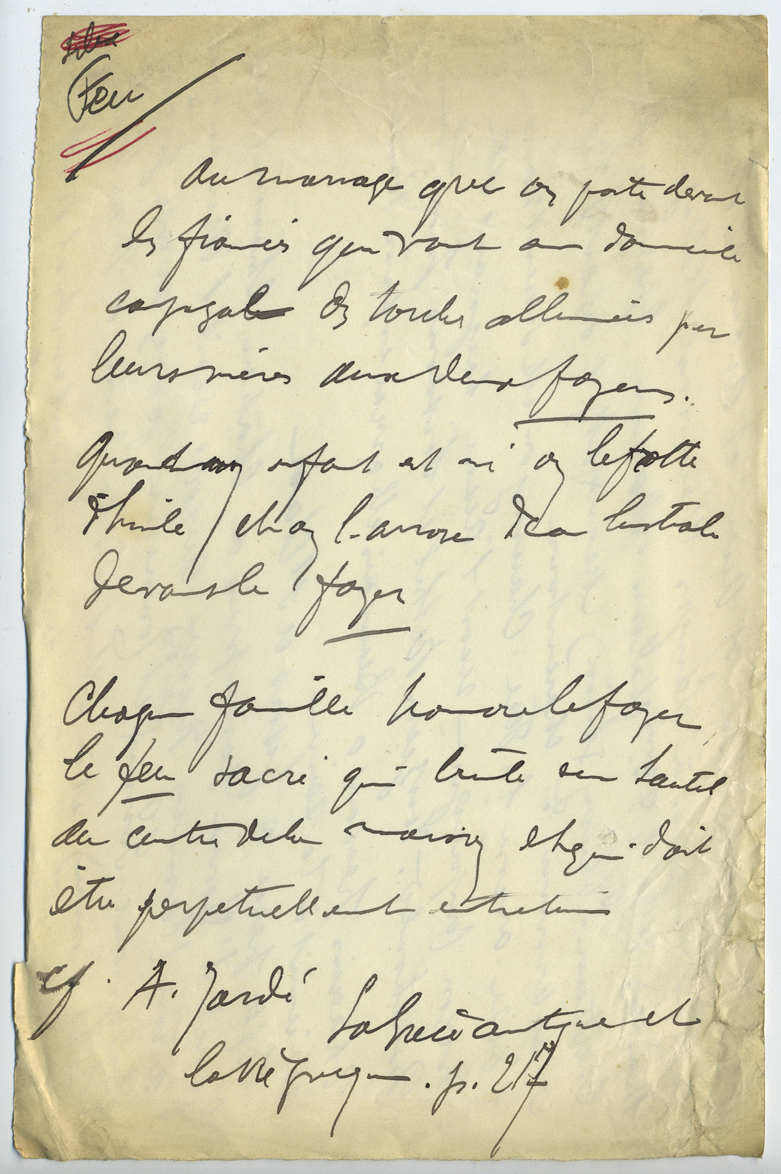 Feu
Au mariage grec on porte devant
les fiancés qui vont au domicile
conjugale des torches allumées par
leurs mères aux deux foyers.
Quand un enfant est né on le frotte
d'huile / et on l'arrose d'eau lustrale
devant le foyer
Chaque famille honore le foyer
le feu sacré qui brûle sur l'autel
au centre de la maison et qui doit
être perpétuellement entretenu
cf. A. Jardé La Grèce antique et
la vie grecque. p. 217